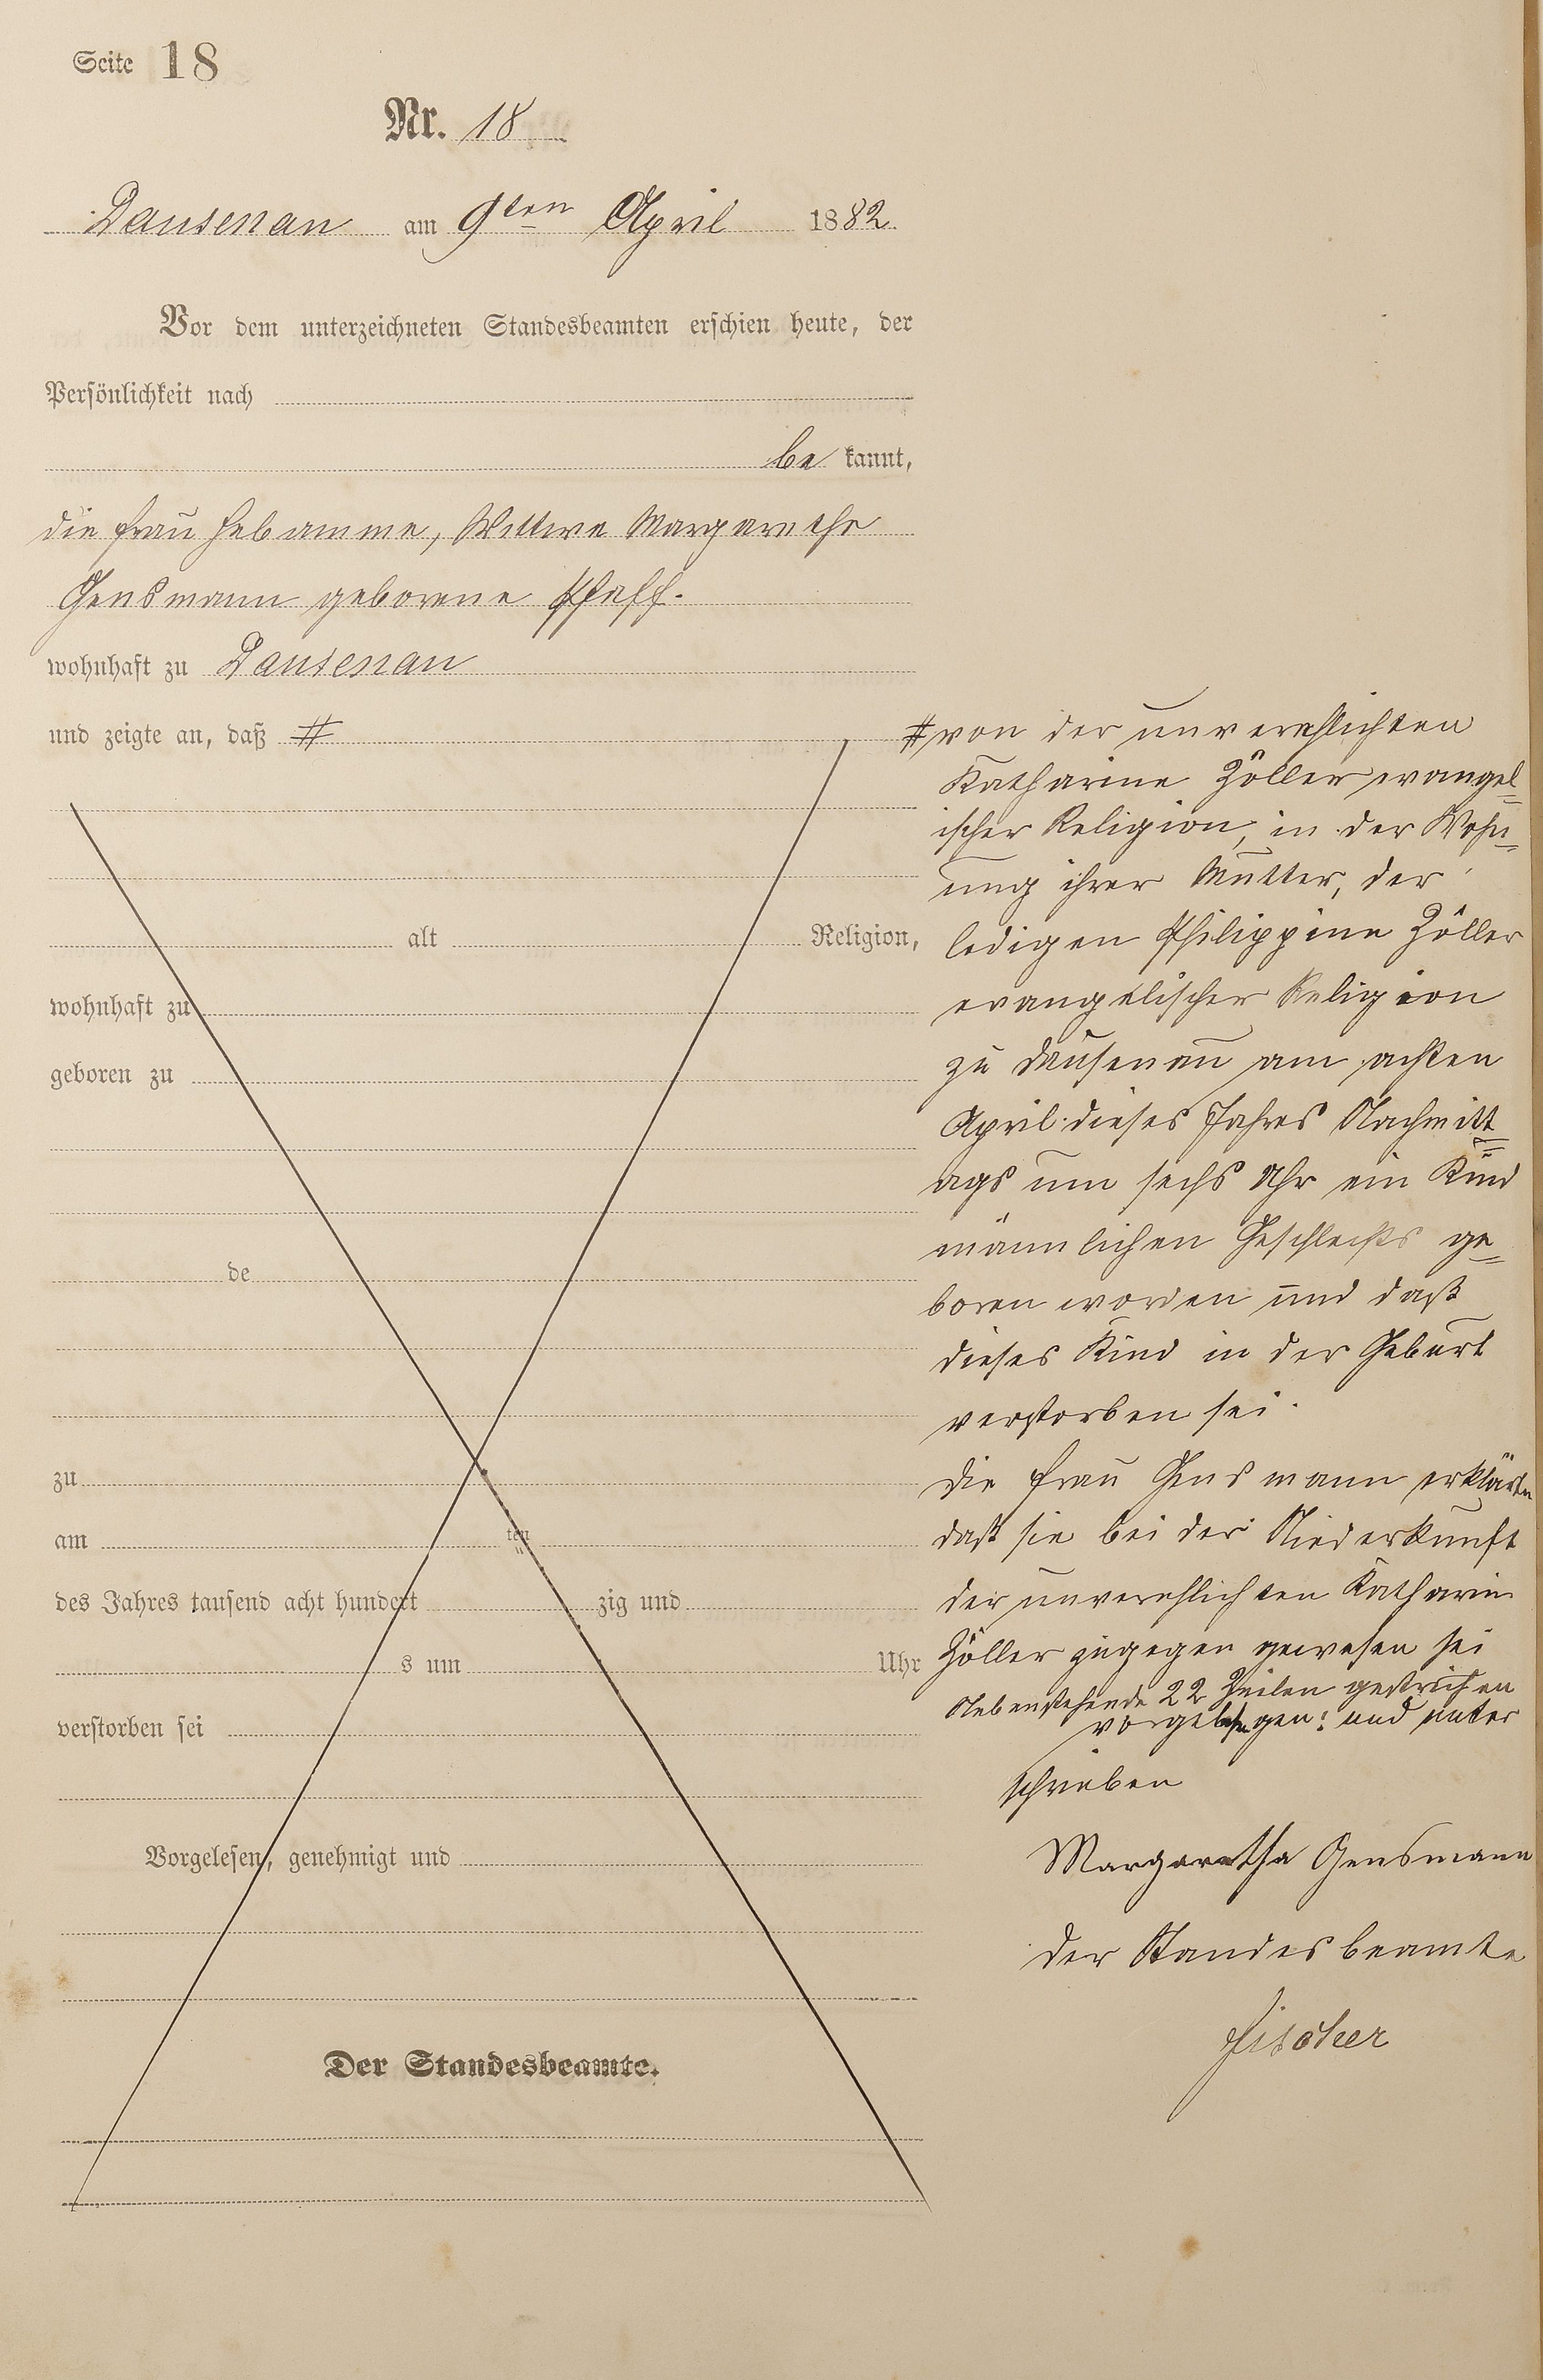 Seite 18
Nr. 18
Dausenau am 9ten April 1882
Vor dem unterzeichneten Standesbeamten erschien heute, der
Persönlichkeit nach
be kannt,
die Frau Hebamme, Wittwe Margarethe
Gensmann geborene Pfaff.
wohnhaft zu Dausenau
und zeigte an, daß #
alt Religion,
wohnhaft zu
geboren zu
de
zu
am ten
des Jahres tausend acht hundert zig und
s um Uhr
verstorben sei
Vorgelesen, genehmigt und
Der Standesbeamte.
# von der unverehlichten
Katharine Zöller evangel=
ischer Religion, in der Wohn=
ung ihrer Mutter, der
ledigen Philippine Zöller
evangelischer Religion
zu Dausenau am achten
April dieses Jahres Nachmitt=
ags um sechs Uhr ein Kind
männlichen Geschlechts ge=
boren worden und daß
dieses Kind in der Geburt
verstorben sei.
Die Frau Gensmann erklärte
daß sie bei der Niederkunft
der unverehlichten Katharine
Zöller zugegen gewesen sei
Nebenstehende 22 Zeilen gestrichen
und unter
schrieben
Margaretha Gensmann
Der Standesbeamte
Fischer